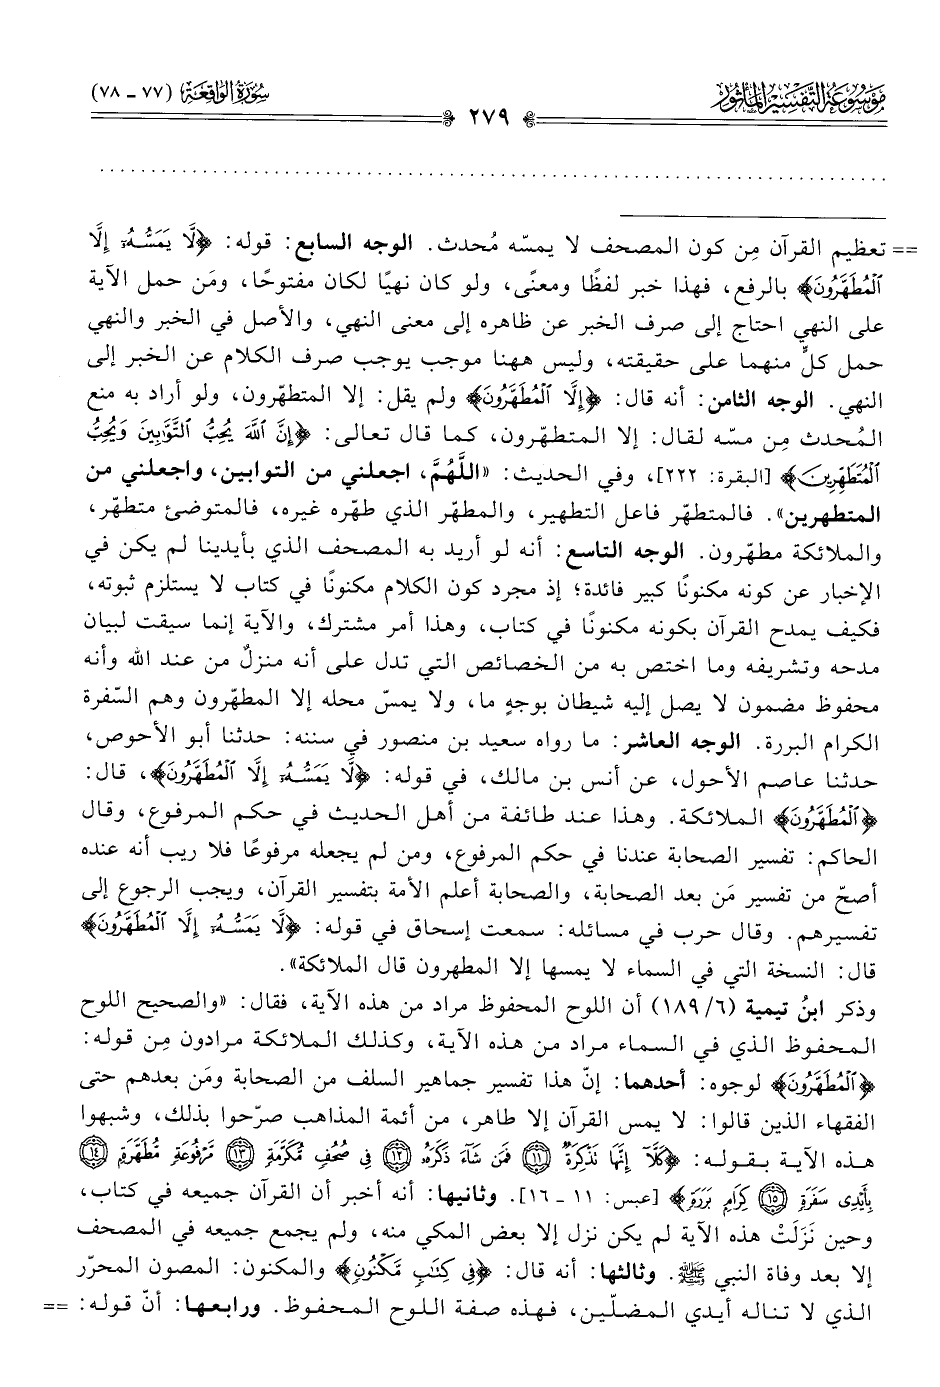 موسوعة التفسير المأثور
سورة الواقعة (٧٧ - ٧٨)
٢٧٩
== تعظيم القرآن مِن كون المصحف لا يمسّه مُحدث. الوجه السابع: قوله: ﴿لَّا يَمَسُّهُۥٓ إِلَّا
ٱلۡمُطَهَّرُونَ﴾ بالرفع، فهذا خبر لفظًا ومعنًى، ولو كان نهيًا لكان مفتوحًا، ومَن حمل الآية
على النهي احتاج إلى صرف الخبر عن ظاهره إلى معنى النهي، والأصل في الخبر والنهي
حمل كلٍّ منهما على حقيقته، وليس ههنا موجب يوجب صرف الكلام عن الخبر إلى
النهي. الوجه الثامن: أنه قال: ﴿إِلَّا ٱلۡمُطَهَّرُونَ﴾ ولم يقل: إلا المتطهّرون، ولو أراد به منع
المُحدث مِن مسّه لقال: إلا المتطهّرون، كما قال تعالى: ﴿إِنَّ ٱللَّهَ يُحِبُّ ٱلتَّوَّٰبِينَ وَيُحِبُّ
ٱلۡمُتَطَهِّرِينَ﴾ [البقرة: ٢٢٢]، وفي الحديث: «اللَّهُمَّ، اجعلني من التوابين، واجعلني من
المتطهرين». فالمتطهّر فاعل التطهير، والمطهّر الذي طهّره غيره، فالمتوضئ متطهّر،
والملائكة مطهّرون. الوجه التاسع: أنه لو أريد به المصحف الذي بأيدينا لم يكن في
الإخبار عن كونه مكنونًا كبير فائدة؛ إذ مجرد كون الكلام مكنونًا في كتاب لا يستلزم ثبوته،
فكيف يمدح القرآن بكونه مكنونًا في كتاب، وهذا أمر مشترك، والآية إنما سيقت لبيان
مدحه وتشريفه وما اختص به من الخصائص التي تدل على أنه منزلٌ من عند الله وأنه
محفوظ مضمون لا يصل إليه شيطان بوجهٍ ما، ولا يمسّ محله إلا المطهّرون وهم السّفرة
الكرام البررة. الوجه العاشر: ما رواه سعيد بن منصور في سننه: حدثنا أبو الأحوص،
حدثنا عاصم الأحول، عن أنس بن مالك، في قوله: ﴿لَّا يَمَسُّهُۥٓ إِلَّا ٱلۡمُطَهَّرُونَ﴾، قال:
﴿ٱلۡمُطَهَّرُونَ﴾ الملائكة. وهذا عند طائفة من أهل الحديث في حكم المرفوع، وقال
الحاكم: تفسير الصحابة عندنا في حكم المرفوع، ومن لم يجعله مرفوعًا فلا ريب أنه عنده
أصحّ من تفسير مَن بعد الصحابة، والصحابة أعلم الأمة بتفسير القرآن، ويجب الرجوع إلى
تفسيرهم. وقال حرب في مسائله: سمعت إسحاق في قوله: ﴿لَّا يَمَسُّهُۥٓ إِلَّا ٱلۡمُطَهَّرُونَ﴾
قال: النسخة التي في السماء لا يمسها إلا المطهرون قال الملائكة».
وذكر ابنُ تيمية (٦/ ١٨٩) أن اللوح المحفوظ مراد من هذه الآية، فقال: «والصحيح اللوح
المحفوظ الذي في السماء مراد من هذه الآية، وكذلك الملائكة مرادون مِن قوله:
﴿ٱلۡمُطَهَّرُونَ﴾ لوجوه: أحدهما: إنّ هذا تفسير جماهير السلف من الصحابة ومَن بعدهم حتى
الفقهاء الذين قالوا: لا يمس القرآن إلا طاهر، من أئمة المذاهب صرّحوا بذلك، وشبهوا
هذه الآية بقوله: ﴿كَلَّآ إِنَّهَا تَذۡكِرَةٞ ١١ فَمَن شَآءَ ذَكَرَهُۥ ١٢ فِي صُحُفٖ مُّكَرَّمَةٖ ١٣ مَّرۡفُوعَةٖ مُّطَهَّرَةِۭ ١٤
بِأَيۡدِي سَفَرَةٖ ١٥ كِرَامِۭ بَرَرَةٖ﴾ [عبس: ١١ - ١٦]. وثانيها: أنه أخبر أن القرآن جميعه في كتاب،
وحين نَزَلَتْ هذه الآية لم يكن نزل إلا بعض المكي منه، ولم يجمع جميعه في المصحف
إلا بعد وفاة النبي ﷺ. وثالثها: أنه قال: ﴿فِي كِتَٰبٖ مَّكۡنُونٖ﴾ والمكنون: المصون المحرّر
الذي لا تناله أيدي المضلّين، فهذه صفة اللوح المحفوظ. ورابعها: أنّ قوله: ==